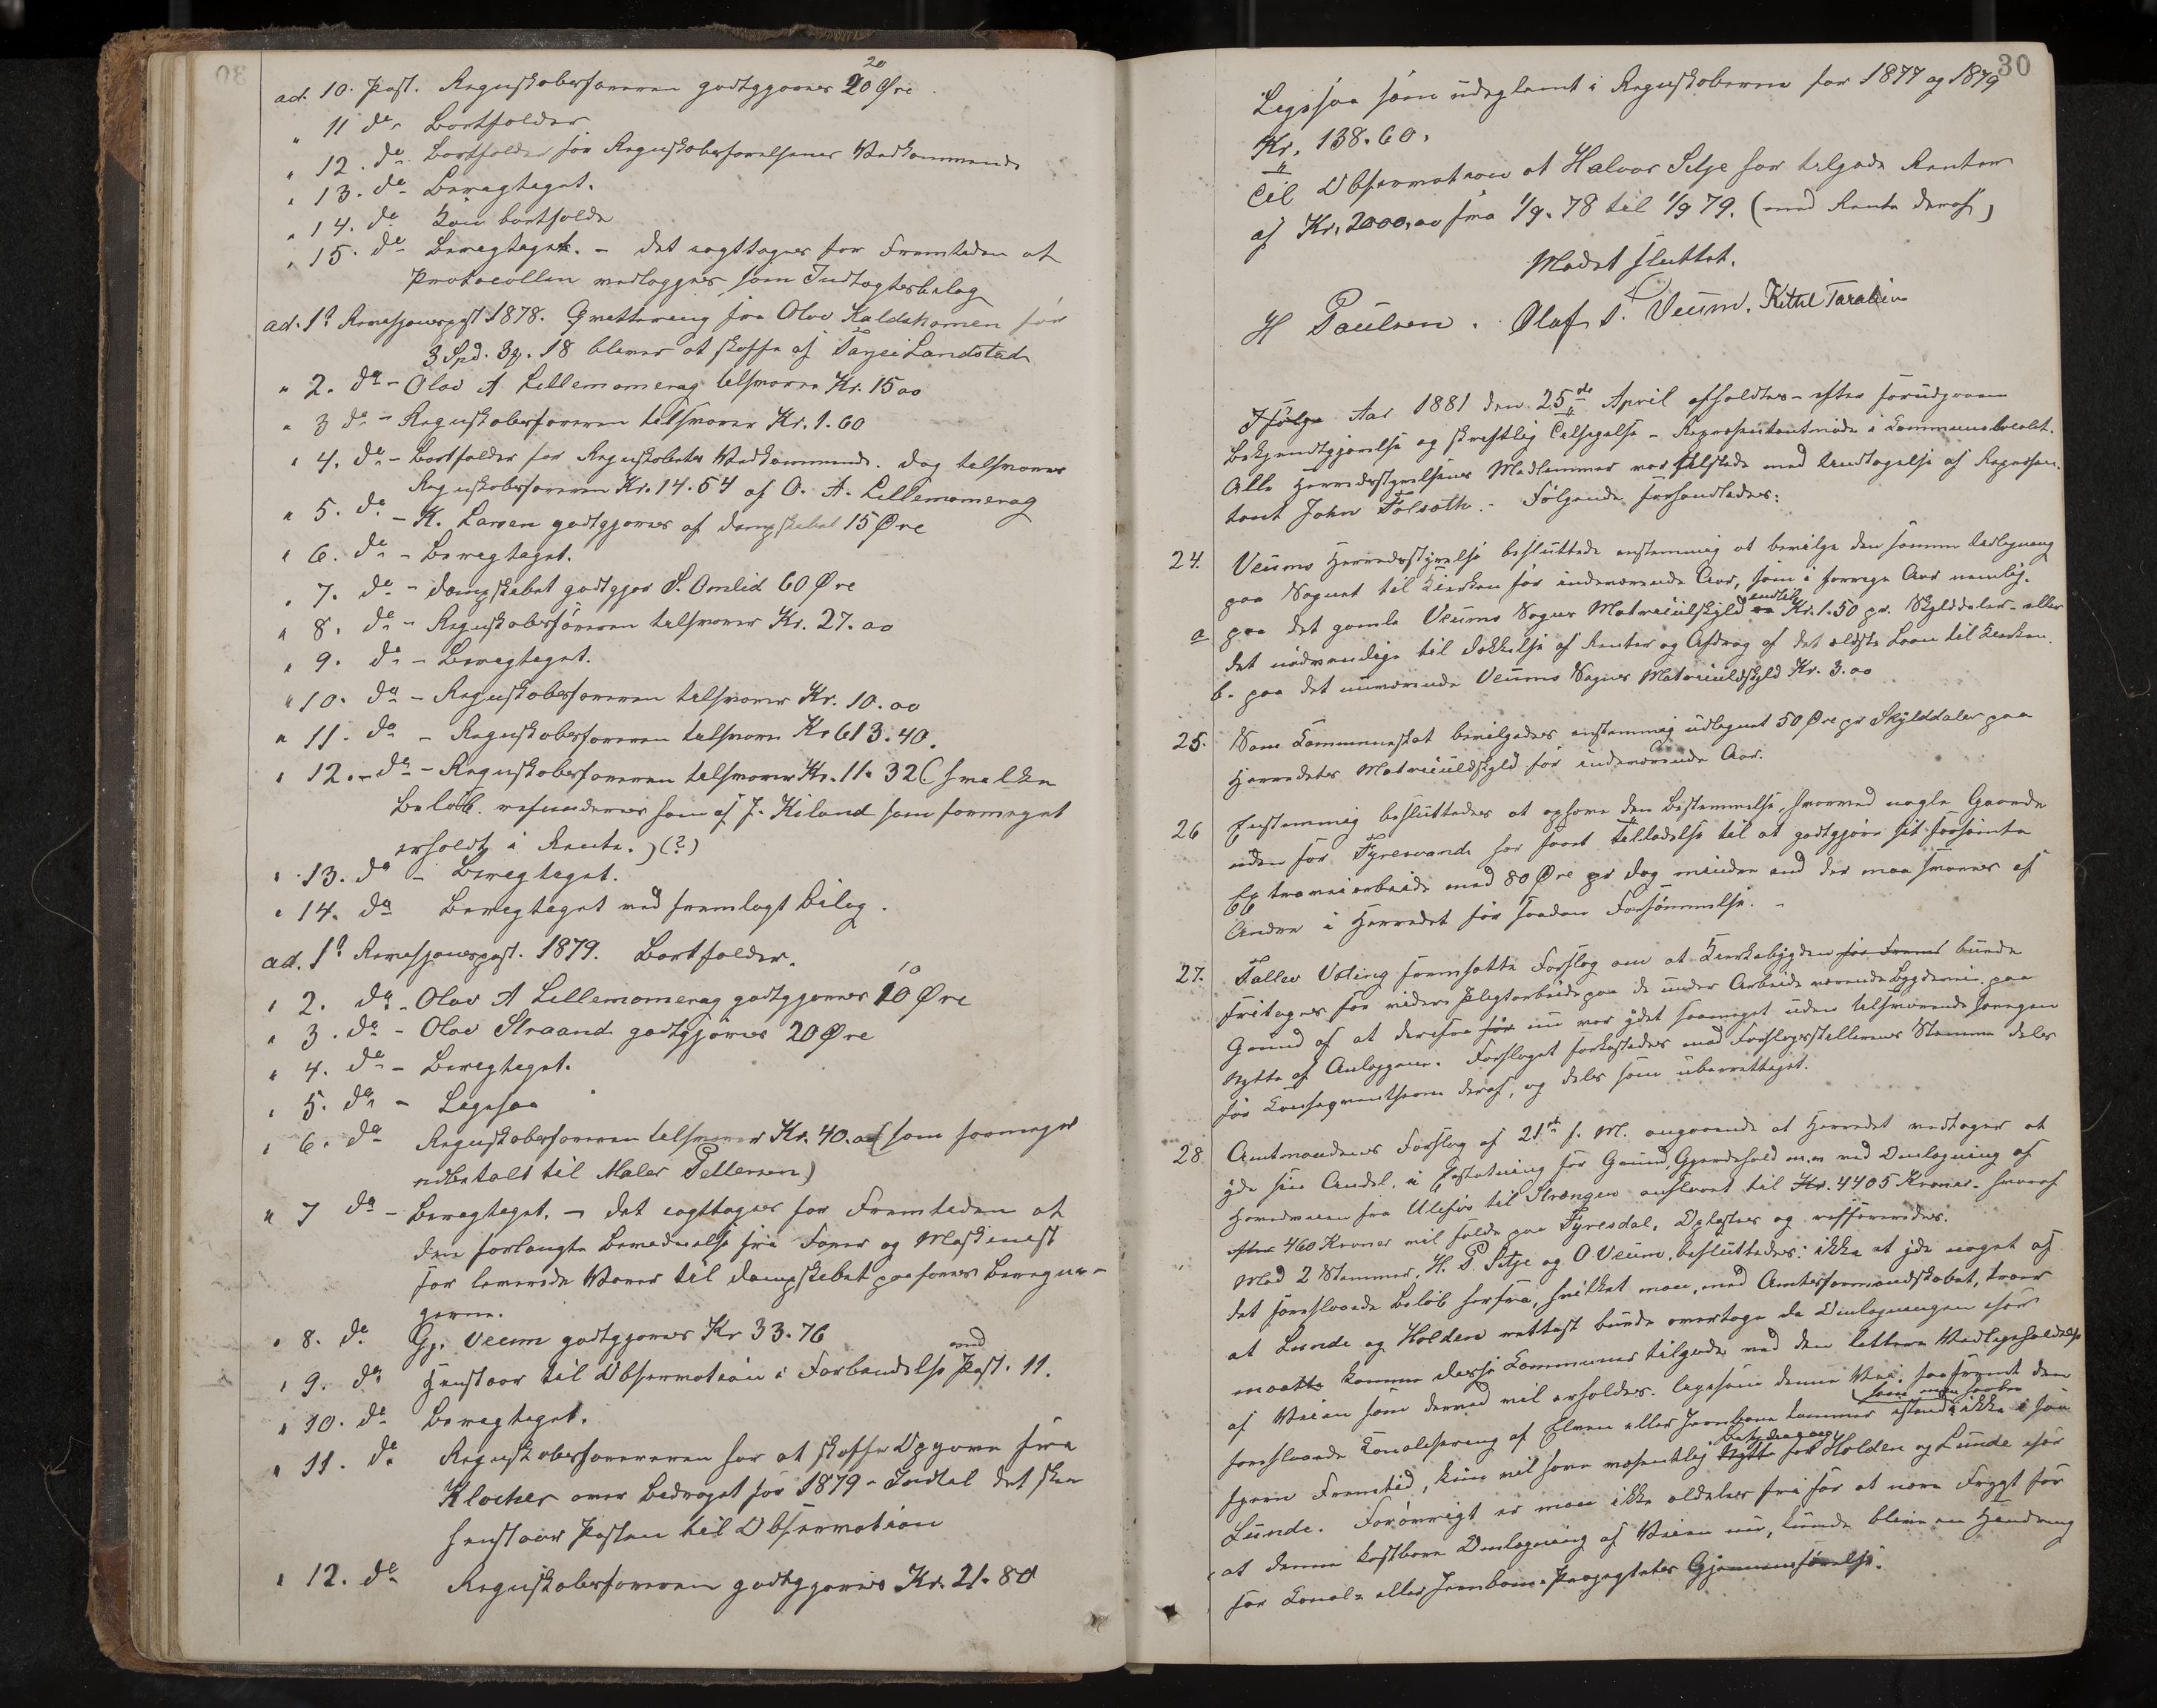 ad. 10. Post. Regnskabsføreren godtgjøres 20 Øre
20
" 11 do. Bortfalder
" 12. do. Bortfalder for Regnskabsførelsens Vedkommende
" 13. do Besvagtaget.
" 14. do Kan bortfalde
" 15. do — det iagttages for Fremtiden at
Protocollen vedlægges som Indtægtsbilag
ad. 1ste Revisjonspost 1878. Qvittering fra Olav Kaldahomen for
3 Spd. 3 18 bliver at skaffe af Tarjei Landstad
" 2. do – Olav A Lillemomerag tilsvarer Kr. 15 00
" 3 do – Regnskabsføreren tilsvarer Kr. 1. 60
" 4. do – Bortfalder for Regnskabets Vedkommende. dog tilsvarer
Regnskabsføreren Kr. 14. 54 af O. A. Lillemomerag
" 5. do – K. Larsen godtgjøres af dampskibet 15 Øre
" 6. do –
" 7. do – dampskibet godtgjør S. Omlid 60 Øre
" 8. do – Regnskabsføreren tilsvarer Kr. 27. 00
" 9. do –
" 10. do – Regnskabsføreren tilsvarer Kr. 10. 00
" 11. do – Regnskabsføreren tilsvarer Kr 613. 40.
" 12. – do – Regnskabsføreren tilsvarer Kr. 11. 32 (hvilke
Beløb refunderes ham af J. Kiland som formeget
erholdt i Rente.) (?)
" 13. do –
" 14. do ved fremlagt bilag.
ad. 1ste Revisjonspost. 1879. Bortfalder.
10
" 2. do – Olav A Lillemomerag godtgjøres 10 Øre
" 3. do – Olav Straand godtgjøres 20 Øre
" 4. do –
" 5. do – Ligesaa
" 6. do Regnskabsføreren tilsvarer Kr. 40. 00 (som formeget
udbetalt til Maler Pettersen)
" 7 do – – det iagttages for Fremtiden at
den forlangte fra Former og Maskinist
for leverede Varer til dampskibet paaføres
gerne.
" 8. do Gj. Veum godtgjøres Kr 33. 76
" 9. do Henstaar til Observation i Forbindelse med Post. 11.
" 10. do
" 11. do Regnskabsføreren har at skaffe Opgave fra
Klocker over Bidraget for 1879 – Indtil det sker
henstaar Posten til Observation
" 12. do Regnskabsføreren godtgjøres Kr. 21. 80
30
Ligesaa som udeglemt i Regnskaberne for 1877 og 1879
Kr. 138. 60.
Til Observation at Halvor Setje har tilgode Renter
af Kr. 2000,00 fra 1/9. 78 til 1/9 79. (med Rente deraf)
Mødet sluttet.
H Paulsen. Olaf S. Veum. Kittil Taraldsen
Ifølge Aar 1881 den 25de April afholdtes – efter forudgaaen
Bekjendtgjørelse og skriftlig Tilsigelse – Repræsentantmøde i Kommunelocalet.
Alle Herredsstyrelsens Medlemmer var tilstede med Undtagelse af Repræsen-
tant John Folsæth. – Følgende forhandledes:
24. Veums Herredsstyrelse besluttede enstemmig at bevilge den samme Udligning
paa Sognet til Kirken for indeværende Aar, som i forrige Aar nemlig.
a paa det gamle Veums Sogns Matrikulskyld indtil Kr. 1.50 pr. Skylddaler – eller
det nødvendige til Dækkelse af Renter og Afdrag af det ældste Laan til Kirken.
b. paa det nuværende Veums Sogns Matrikulskyld Kr. 3. 00
25. Som Kommuneskat bevilgedes enstemmig udlignet 50 Øre pr Skylddaler paa
Herredets Matrikulskyld for indeværende Aar.
26 Enstemmig besluttedes at ophæve den Bestemmelse, hvorved nogle Gaarde
uden for Fyresvand har faaet Tilladelse til at godtgjøre sit forsømte
Extraveiarbeide med 80 Øre pr dag mindre end der maa svares af
Andre i Herredet for saadan Forsømmelse. –
27. Tallev Veding fremsatte Forslag om at Kirkebygden for Fremt burde
fritages for videre Pligtarbeide paa de under Arbeide værende Bygdeveie paa
Grund af at derfra før nu var ydet saameget uden tilsvarende
Nytte af Anlæggene. Forslaget forkastedes mod Forslagsstillerens Stemme dels
for Konsequentsen deraf, og dels som uberettiget.
28 Amtmandens Forslag af 21de f. M. angaaende at Herredet vedtager at
yde sin Andel i Erstatning for Grund, Gjerdehold m.m ved Omlægning af
Hovedveien fra Ulefos til Strengen anslaaet til Kr. 4405 Kroner – hvoraf
efter 460 Kroner vil falde paa Fyresdal, Oplæstes og refereredes.
Mod 2 Stemmer, H. P Setje og O Veum, besluttedes: ikke at yde noget af
det foreslaaede Beløb herfra, hvilket man, med Amtsformandskabet, troer
at Lunde og Holden rettest burde overtage da Omlægningen især
maatte komme disse Kommuner tilgode ved den lettere Vedligeholdelse
af Veien som derved vil erholdes. ligesom denne Vei, saafremt den
foreslaaede Kanalisering af Elven eller Jernbane kommer istand som man haaber ikke i saa
fjern Fremtid, kun vil have væsentlig Nytte Betydning for Holden og Lunde især
Lunde. Forøvrigt er man ikke aldeles fri for at nære Frygt for
at denne kostbare Omlægning af Veien nu, kunde blive en Hindring
for Kanal- eller Jernbane-Projectets Gjennemførelse.